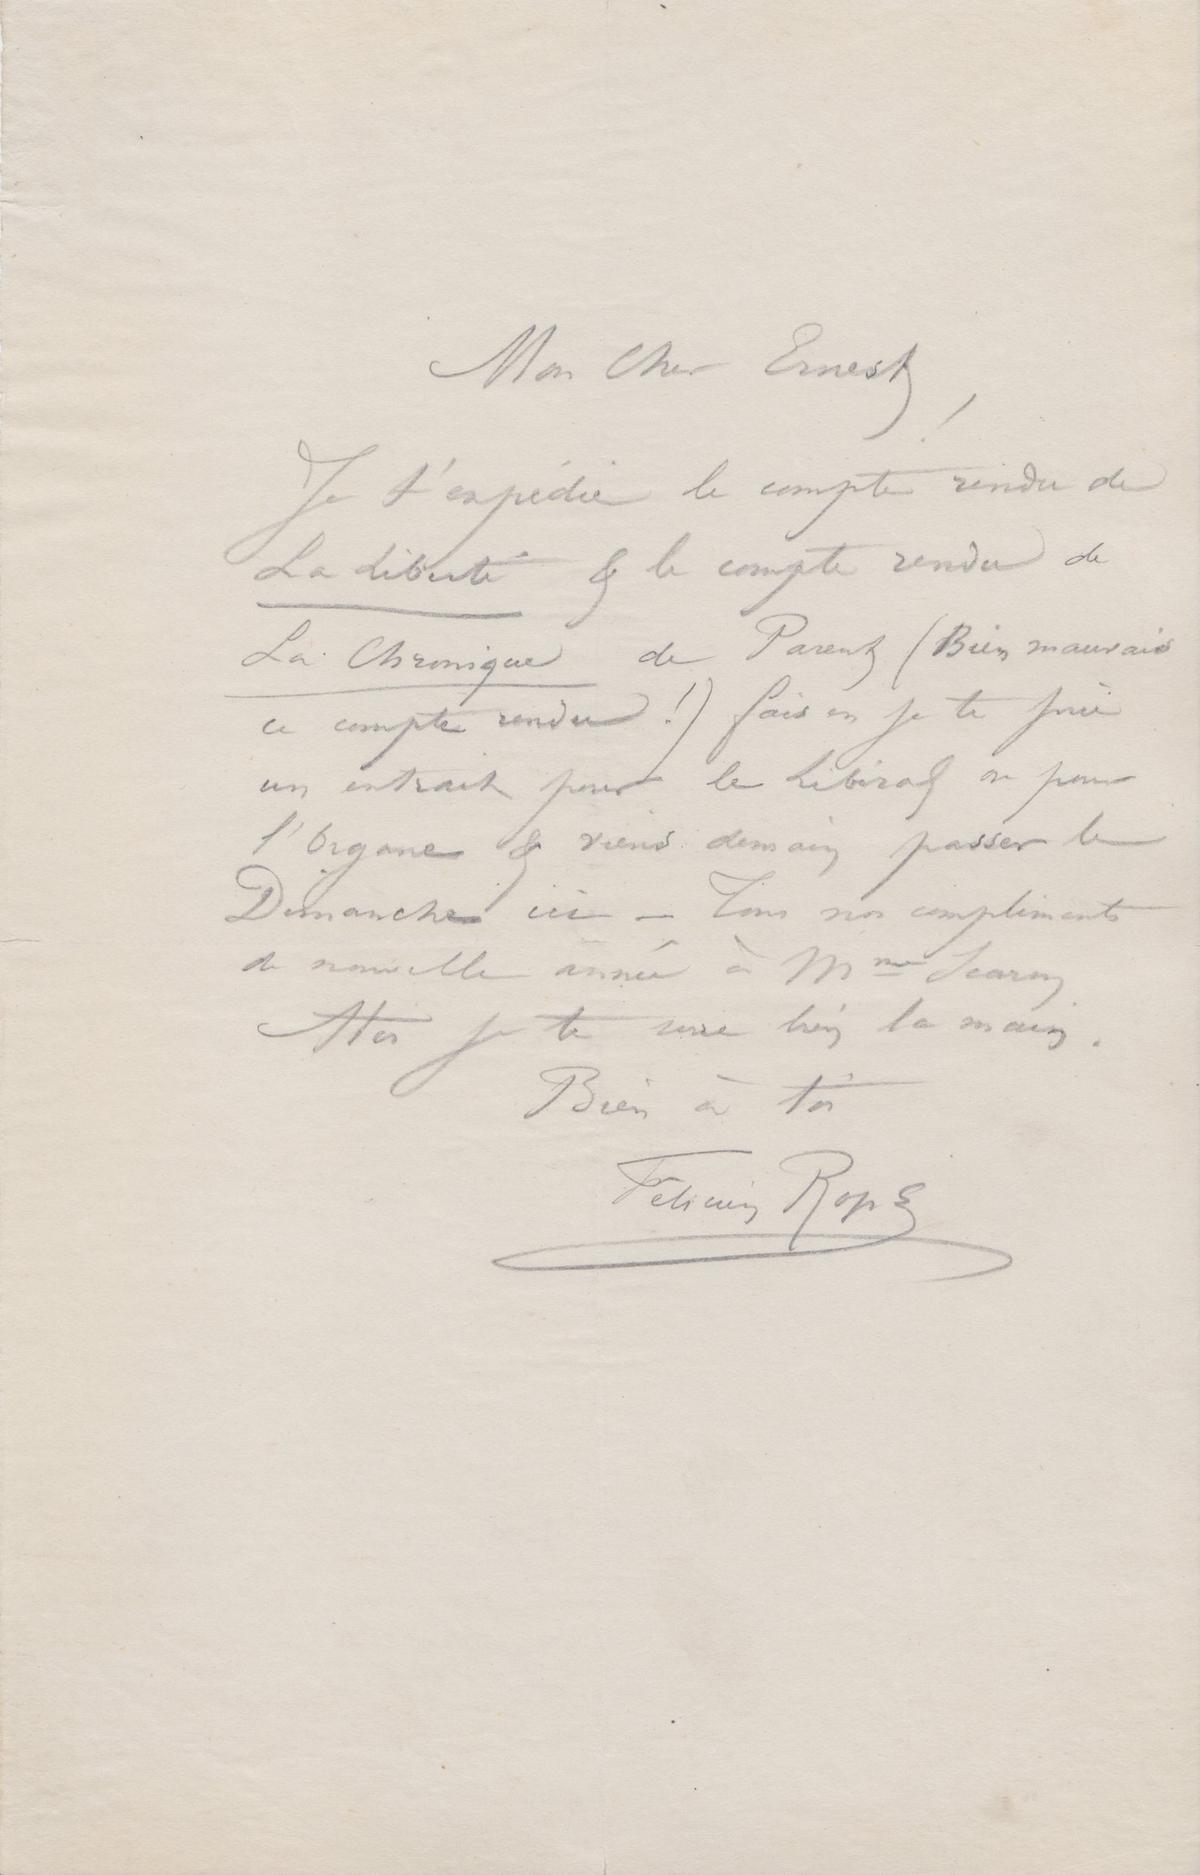 Mon Cher Ernest !
Je t'expédie le compte rendu de
La Liberté & le compte rendu de
La Chronique de Parent (Bien mauvais
ce compte rendu !) fais en je te prie
un extrait pour le Libéral ou pour
l'Organe & viens demain passer le
Dimanche ici – Tous nos compliments
de nouvelle année à Mme Scaron
A toi je te serre bien la main.
Bien à toi
Félicien Rops